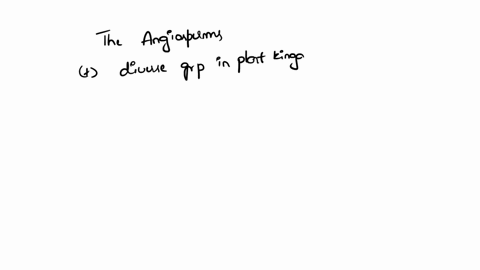 The Angiosperms
(*) diverse grp in plant kingo